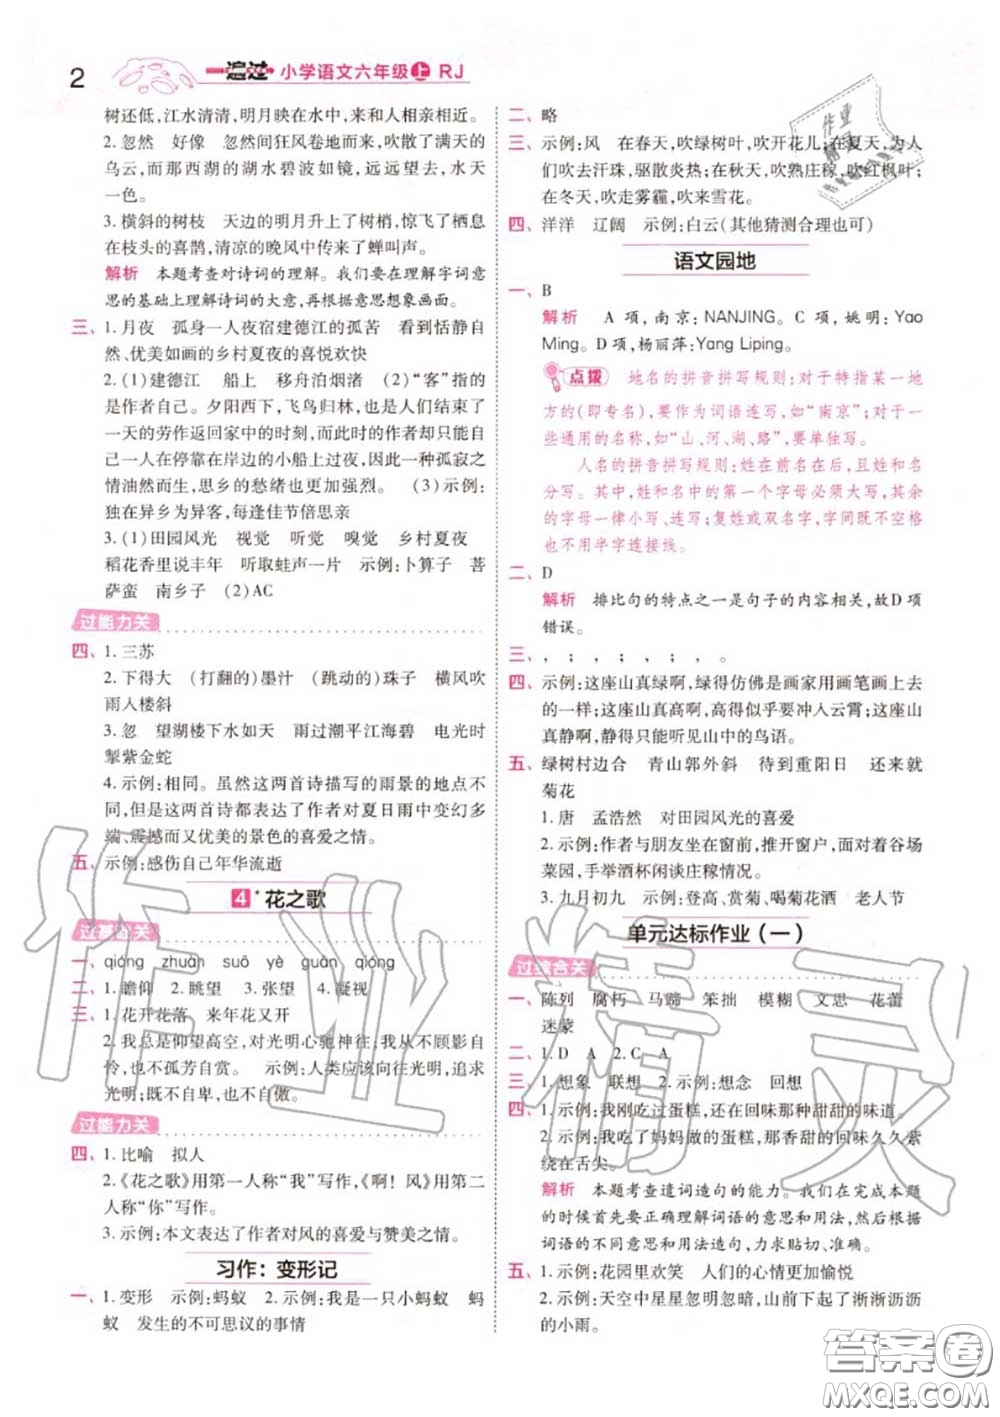 2
一遍过 小学语文六年级上 RJ
树还低,江水清清,明月映在水中,来和人相亲相近。
2. 忽然 好像 忽然间狂风卷地而来,吹散了满天的
乌云,而那西湖的湖水碧波如镜,远远望去,水天
一色。
3. 横斜的树枝 天边的明月升上了树梢,惊飞了栖息
在枝头的喜鹊,清凉的晚风中传来了蝉叫声。
解析 本题考查对诗词的理解。我们要在理解字词意
思的基础上理解诗词的大意,再根据意思想象画面。
三、1. 月夜 孤身一人夜宿建德江的孤苦 看到恬静自
然、优美如画的乡村夏夜的喜悦欢快
2. (1)建德江 船上 移舟泊烟渚 (2)“客”指的
是作者自己。夕阳西下,飞鸟归林,也是人们结束了
一天的劳作返回家中的时刻,而此时的作者却只能自
己一人在停靠在岸边的小船上过夜,因此一种孤寂之
情油然而生,思乡的愁绪也更加强烈。 (3)示例:
独在异乡为异客,每逢佳节倍思亲
3. (1)田园风光 视觉 听觉 嗅觉 乡村夏夜
稻花香里说丰年 听取蛙声一片 示例:卜算子 菩
萨蛮 南乡子 (2)AC
过能力关
四、1. 三苏
2. 下得大 (打翻的)墨汁 (跳动的)珠子 横风吹
雨人楼斜
3. 忽 望湖楼下水如天 雨过潮平江海碧 电光时
掣紫金蛇
4. 示例:相同。虽然这两首诗描写的雨景的地点不
同,但是这两首诗都表达了作者对夏日雨中变幻多
端、震撼而又优美的景色的喜爱之情。
五、示例:感伤自己年华流逝
4* 花之歌
过基础关
一、qióng zhuàn suō yè guàn qióng
二、1. 瞻仰 2. 眺望 3. 张望 4. 凝视
三、1. 花开花落 来年花又开
2. 我总是仰望高空,对光明心驰神往;我从不顾影自
怜,也不孤芳自赏。 示例:人类应该向往光明,追求
光明;既不自卑,也不自傲。
过能力关
四、1. 比喻 拟人
2. 《花之歌》用第一人称“我”写作,《啊!风》用第二
人称“你”写作。
3. 示例:本文表达了作者对风的喜爱与赞美之情。
习作:变形记
一、1. 变形 示例:蚂蚁 2. 示例:我是一只小蚂蚁 蚂
蚁 发生的不可思议的事情
二、略
三、示例:风 在春天,吹绿树叶,吹开花儿;在夏天,为人
们吹去汗珠,驱散炎热;在秋天,吹熟庄稼,吹红枫叶;
在冬天,吹走雾霾,吹来雪花。
四、洋洋 辽阔 示例:白云(其他猜测合理也可)
语文园地
一、B
解析 A 项,南京:NANJING。C 项,姚明:Yao
Ming。D 项,杨丽萍:Yang Liping。
点拨 地名的拼音拼写规则:对于特指某一地
方的(即专名),要作为词语连写,如“南京”;对于一
些通用的名称,如“山、河、湖、路”,要单独写。
人名的拼音拼写规则:姓在前名在后,且姓和名
分写。其中,姓和名中的第一个字母必须大写,其余
的字母一律小写、连写;复姓或双名字,字间既不空格
也不用半字连接线。
二、D
解析 排比句的特点之一是句子的内容相关,故D项
错误。
三、, ; , ; , ; , 。
四、示例:这座山真绿啊,绿得仿佛是画家用画笔画上去
的一样;这座山真高啊,高得似乎要冲入云霄;这座山
真静啊,静得只能听见山中的鸟语。
五、绿树村边合 青山郭外斜 待到重阳日 还来就
菊花
1. 唐 孟浩然 对田园风光的喜爱
2. 示例:作者与朋友坐在窗前,推开窗户,面对着谷场
菜园,手举酒杯闲谈庄稼情况。
3. 九月初九 示例:登高、赏菊、喝菊花酒 老人节
单元达标作业(一)
过综合关
一、陈列 腐朽 马蹄 笨拙 模糊 文思 花蕾
迷蒙
二、1. D A 2. C A
三、1. 想象 联想 2. 示例:想念 回想
四、1. 示例:我刚吃过蛋糕,还在回味那种甜甜的味道。
2. 示例:我吃了妈妈做的蛋糕,那香甜的回味久久萦
绕在舌尖。
解析 本题考查遣词造句的能力。我们在完成本题
的时候首先要正确理解词语的意思和用法,然后根据
词语的不同意思和用法造句,力求贴切、准确。
五、1. 示例:花园里欢笑 人们的心情更加愉悦
2. 示例:天空中星星忽明忽暗,山前下起了淅淅沥沥
的小雨。
作业精灵
作业精灵
答案圈
MXQE.COM